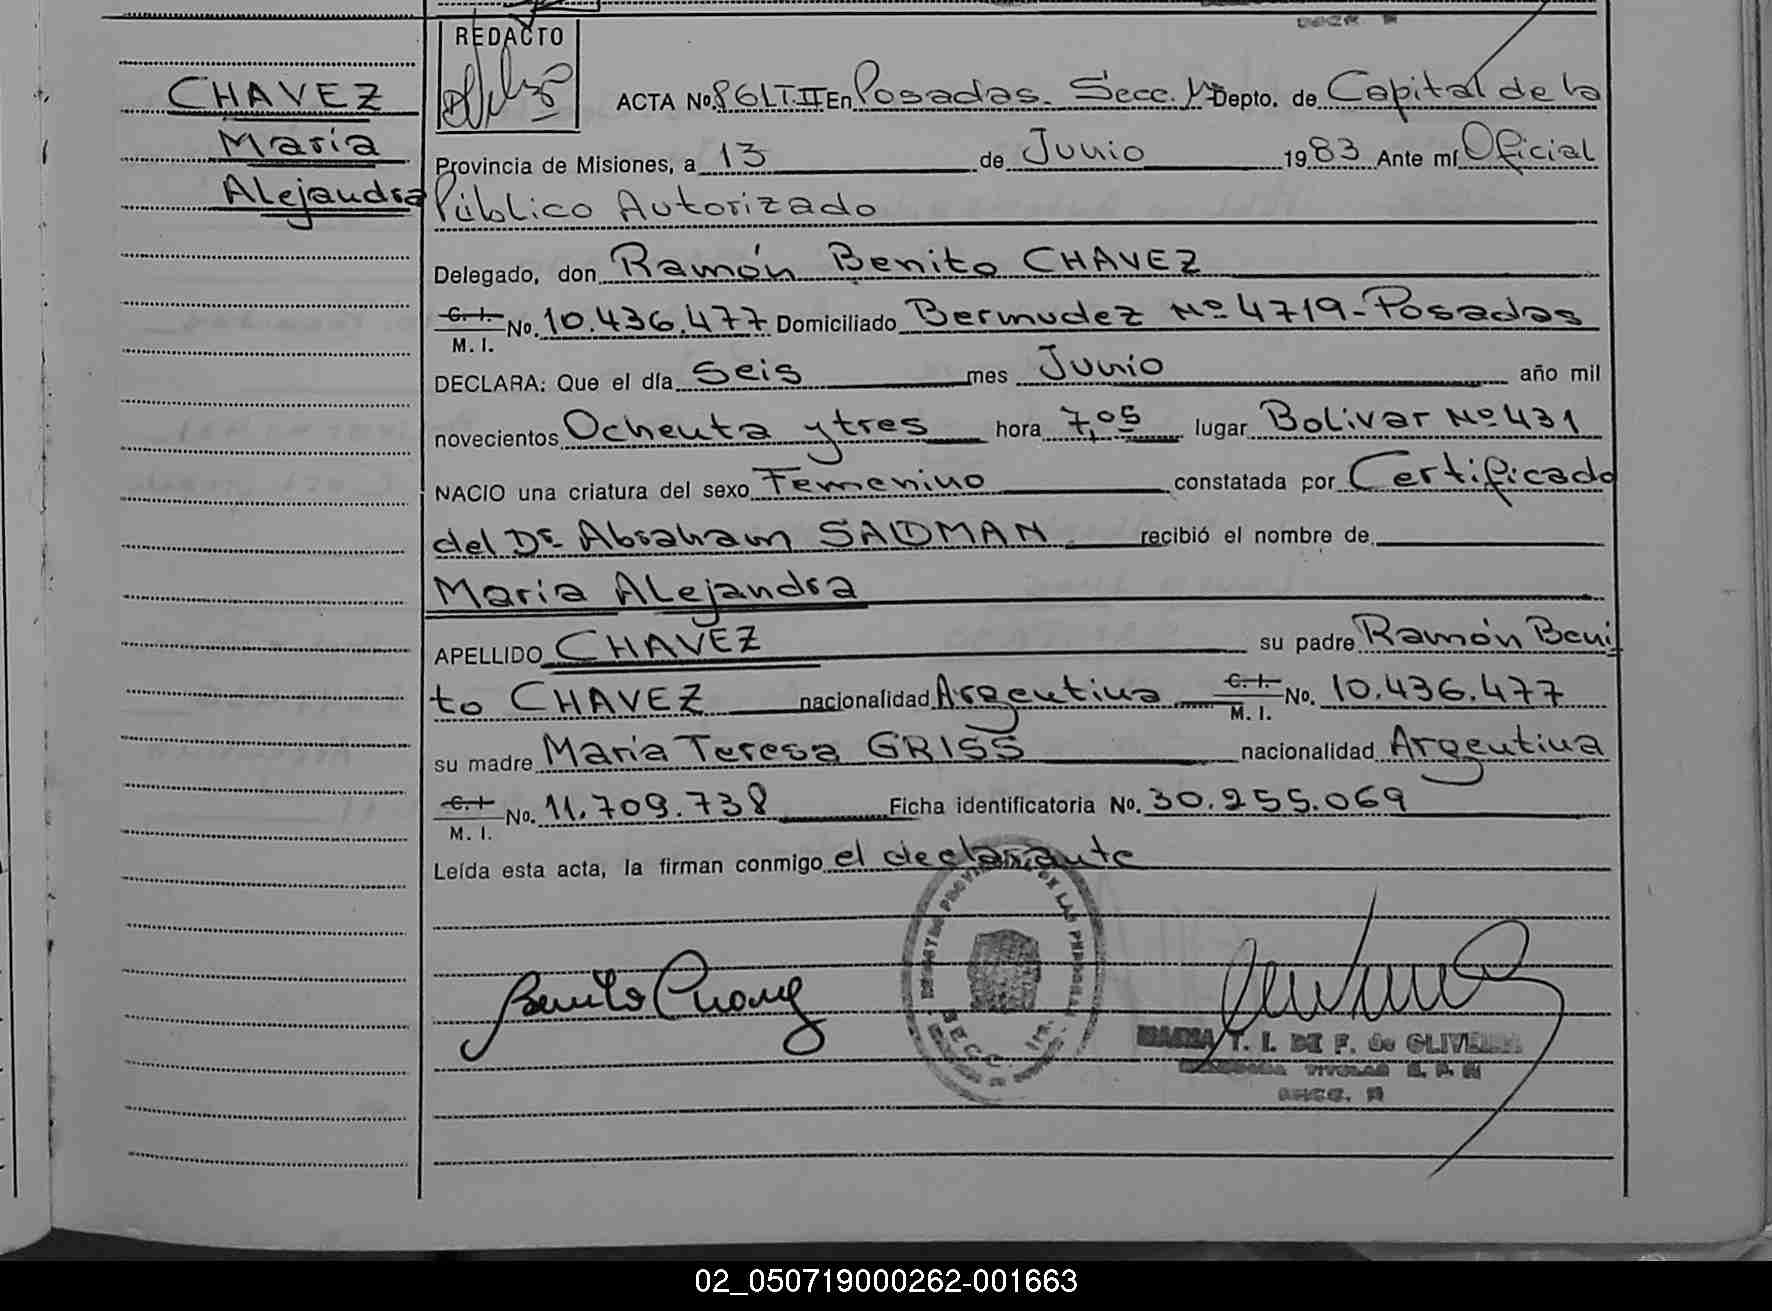 REDACTO
CHAVEZ
Maria
Alejandra
ACTA No. 861 T.II En Posadas. Secc. 1ª Depto. de Capital de la
Provincia de Misiones, a 13 de Junio 1983 Ante mí Oficial
Público Autorizado
Delegado, don Ramón Benito CHAVEZ
C. I. M. I. No. 10.436.477 Domiciliado Bermudez Nº 4719-Posadas
DECLARA: Que el día Seis mes Junio año mil
novecientos Ochenta y tres hora 7,05 lugar Bolivar Nº 431
NACIO una criatura del sexo Femenino constatada por Certificado
del Dr. Abraham SAIDMAN recibió el nombre de
Maria Alejandra
APELLIDO CHAVEZ su padre Ramón Beni
to CHAVEZ nacionalidad Argentina C. I. M. I. No. 10.436.477
su madre María Teresa GRISS nacionalidad Argentina
C. I. M. I. No. 11.709.738 Ficha identificatoria No. 30.255.069
Leída esta acta, la firman conmigo el declarante
REGISTRO PROVINCIAL DE LAS PERSONAS
SECC. 1ra.
Benito Chavez
MARIA T. I. DE F. de OLIVEIRA
TITULAR
SECC.
02_050719000262-001663